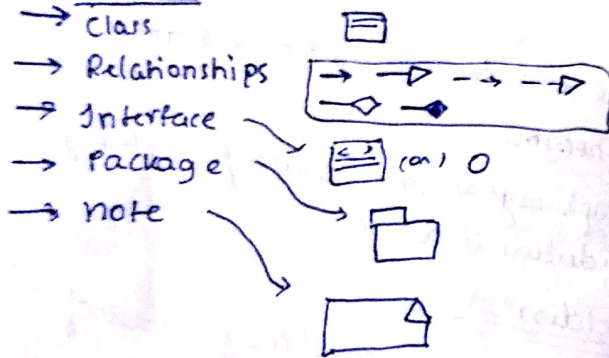 Class
Relationships
Interface
< > (or) O
Package
note